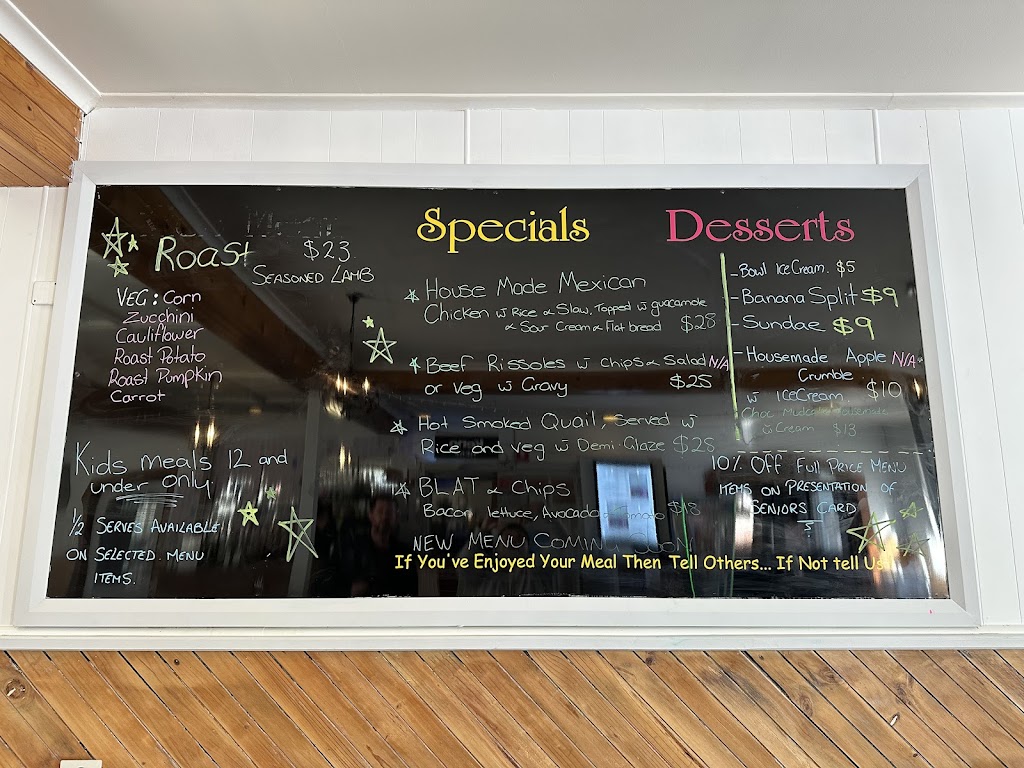 Roast $23
Seasoned Lamb
Veg: Corn
Zucchini
Cauliflower
Roast Potato
Roast Pumpkin
Carrot
Kids meals 12 and
under only.
1/2 Serves Available
on selected menu
items.
Specials
House Made Mexican
Chicken w Rice & Slaw. Topped w guacamole
& Sour Cream & Flat bread $28
Beef Rissoles w Chips & Salad N/A
or Veg w Gravy $25
Hot Smoked Quail, Served w
Rice and veg w Demi-Glaze $28
BLAT & Chips
Bacon, lettuce, Avocado & Tomato $18
New Menu Coming Soon
If You've Enjoyed Your Meal Then Tell Others... If Not tell Us
Desserts
- Bowl Ice Cream. $5
- Banana Split $9
- Sundae $9
- Housemade Apple N/A
Crumble
w Ice Cream. $10
Choc Mudcake Housemade
w Cream $13
10% Off Full Price Menu
items on presentation of
Seniors Card